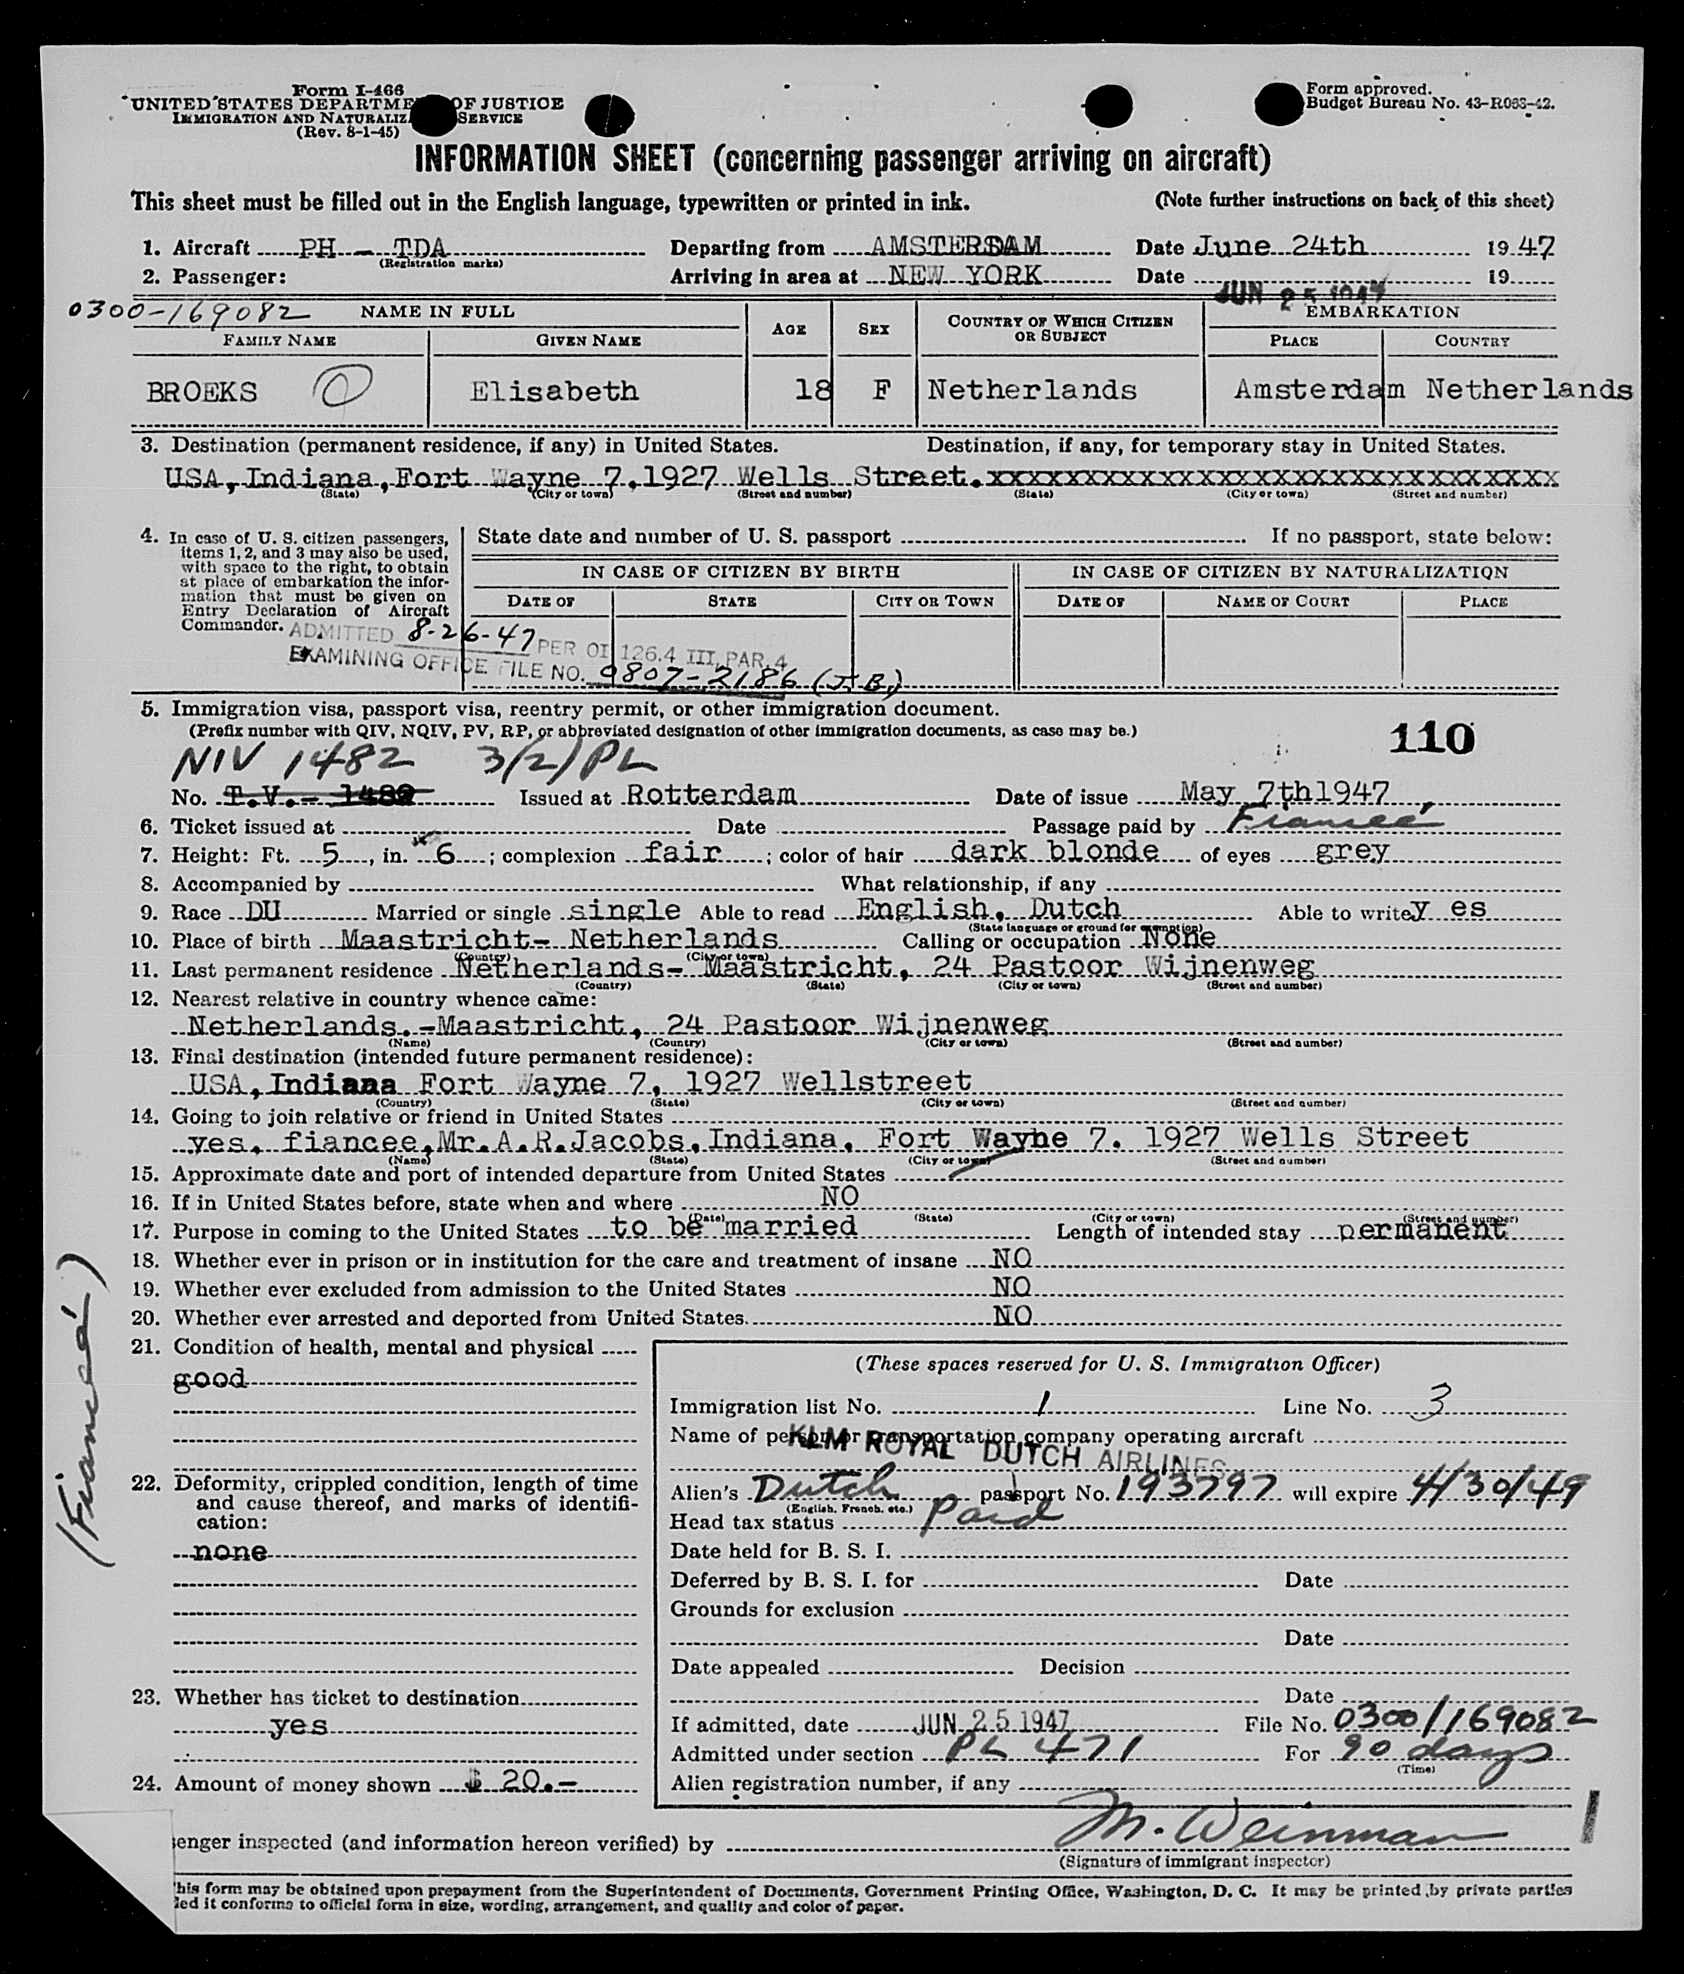 Form I-466
UNITED STATES DEPARTME OF JUSTICE
IMMIGRATION AND NATURALIZ SERVICE
(Rev. 8-1-45)
Form approved.
Budget Bureau No. 43-R063-42.
INFORMATION SHEET (concerning passenger arriving on aircraft)
This sheet must be filled out in the English language, typewritten or printed in ink. (Note further instructions on back of this sheet)
1. Aircraft PH - TDA Departing from AMSTERDAM Date June 24th 19 47
(Registration marks)
2. Passenger: Arriving in area at NEW YORK Date JUN 25 1947 19
0300-169082 NAME IN FULL AGE SEX COUNTRY OF WHICH CITIZEN OR SUBJECT EMBARKATION
FAMILY NAME GIVEN NAME PLACE COUNTRY
BROEKS Elisabeth 18 F Netherlands Amsterdam Netherlands
3. Destination (permanent residence, if any) in United States. Destination, if any, for temporary stay in United States.
USA, Indiana, Fort Wayne 7,1927 Wells Street.xxxxxxxxxxxxxxxxxxxxxxxxxxxxxx
(State) (City or town) (Street and number) (State) (City or town) (Street and number)
4. In case of U. S. citizen passengers, items 1, 2, and 3 may also be used, with space to the right, to obtain at place of embarkation the information that must be given on Entry Declaration of Aircraft Commander.
State date and number of U. S. passport If no passport, state below:
IN CASE OF CITIZEN BY BIRTH IN CASE OF CITIZEN BY NATURALIZATION
DATE OF STATE CITY OR TOWN DATE OF NAME OF COURT PLACE
ADMITTED 8-26-47 PER OI 126.4 III, PAR. 4
EXAMINING OFFICE FILE NO. 0807-2186 (J.B.)
5. Immigration visa, passport visa, reentry permit, or other immigration document.
(Prefix number with QIV, NQIV, PV, RP, or abbreviated designation of other immigration documents, as case may be.)
110
NIV 1482 3(2) PL
No. T.V.- 1482 Issued at Rotterdam Date of issue May 7th1947
6. Ticket issued at Date Passage paid by Fianceé
7. Height: Ft. 5, in. 6; complexion fair; color of hair dark blonde of eyes grey
8. Accompanied by What relationship, if any
9. Race DU Married or single single Able to read English, Dutch Able to write y es
(State language or ground for exemption)
10. Place of birth Maastricht- Netherlands Calling or occupation None
(Country) (City or town)
11. Last permanent residence Netherlands- Maastricht, 24 Pastoor Wijnenweg
(Country) (State) (City or town) (Street and number)
12. Nearest relative in country whence came:
Netherlands.-Maastricht, 24 Pastoor Wijnenweg
(Name) (Country) (City or town) (Street and number)
13. Final destination (intended future permanent residence):
USA, Indiana Fort Wayne 7, 1927 Wellstreet
(Country) (State) (City or town) (Street and number)
14. Going to join relative or friend in United States
yes, fiancee,Mr.A.R.Jacobs,Indiana, Fort Wayne 7. 1927 Wells Street
(Name) (State) (City or town) (Street and number)
15. Approximate date and port of intended departure from United States
16. If in United States before, state when and where NO
(Date) (State) (City or town) (Street and number)
17. Purpose in coming to the United States to be married Length of intended stay permanent
18. Whether ever in prison or in institution for the care and treatment of insane NO
19. Whether ever excluded from admission to the United States NO
20. Whether ever arrested and deported from United States. NO
21. Condition of health, mental and physical
good
22. Deformity, crippled condition, length of time and cause thereof, and marks of identification:
none
23. Whether has ticket to destination
yes
24. Amount of money shown $ 20.-
(Fianceé)
(These spaces reserved for U. S. Immigration Officer)
Immigration list No. 1 Line No. 3
Name of person or transportation company operating aircraft
KLM ROYAL DUTCH AIRLINES
Alien's Dutch passport No. 193797 will expire 4/30/49
(English, French, etc.)
Head tax status Paid
Date held for B. S. I.
Deferred by B. S. I. for Date
Grounds for exclusion
Date
Date appealed Decision
Date
If admitted, date JUN 25 1947 File No. 0300/169082
Admitted under section PL 471 For 90 days
(Time)
Alien registration number, if any
enger inspected (and information hereon verified) by M. Weinman
(Signature of immigrant inspector)
his form may be obtained upon prepayment from the Superintendent of Documents, Government Printing Office, Washington, D. C. It may be printed by private parties
ed it conforms to official form in size, wording, arrangement, and quality and color of paper.